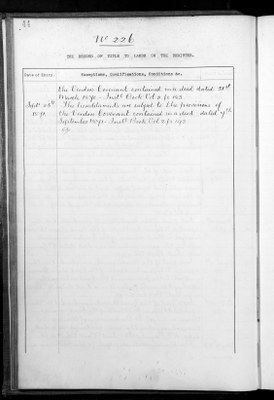 44
No 226
THE RECORD OF TITLE TO LANDS ON THE REGISTER.
Date of Entry.
Exceptions, Modifications, Conditions &c.
the Vendors Covenant contained in a deed dated 21st
March 1890 - Vol 2 fo 193
Sept 26th
1890
The hereditaments are subject to the provisions of
the Vendors Covenant contained in a deed dated 9th
September 1890 - Vol 2 fo 192